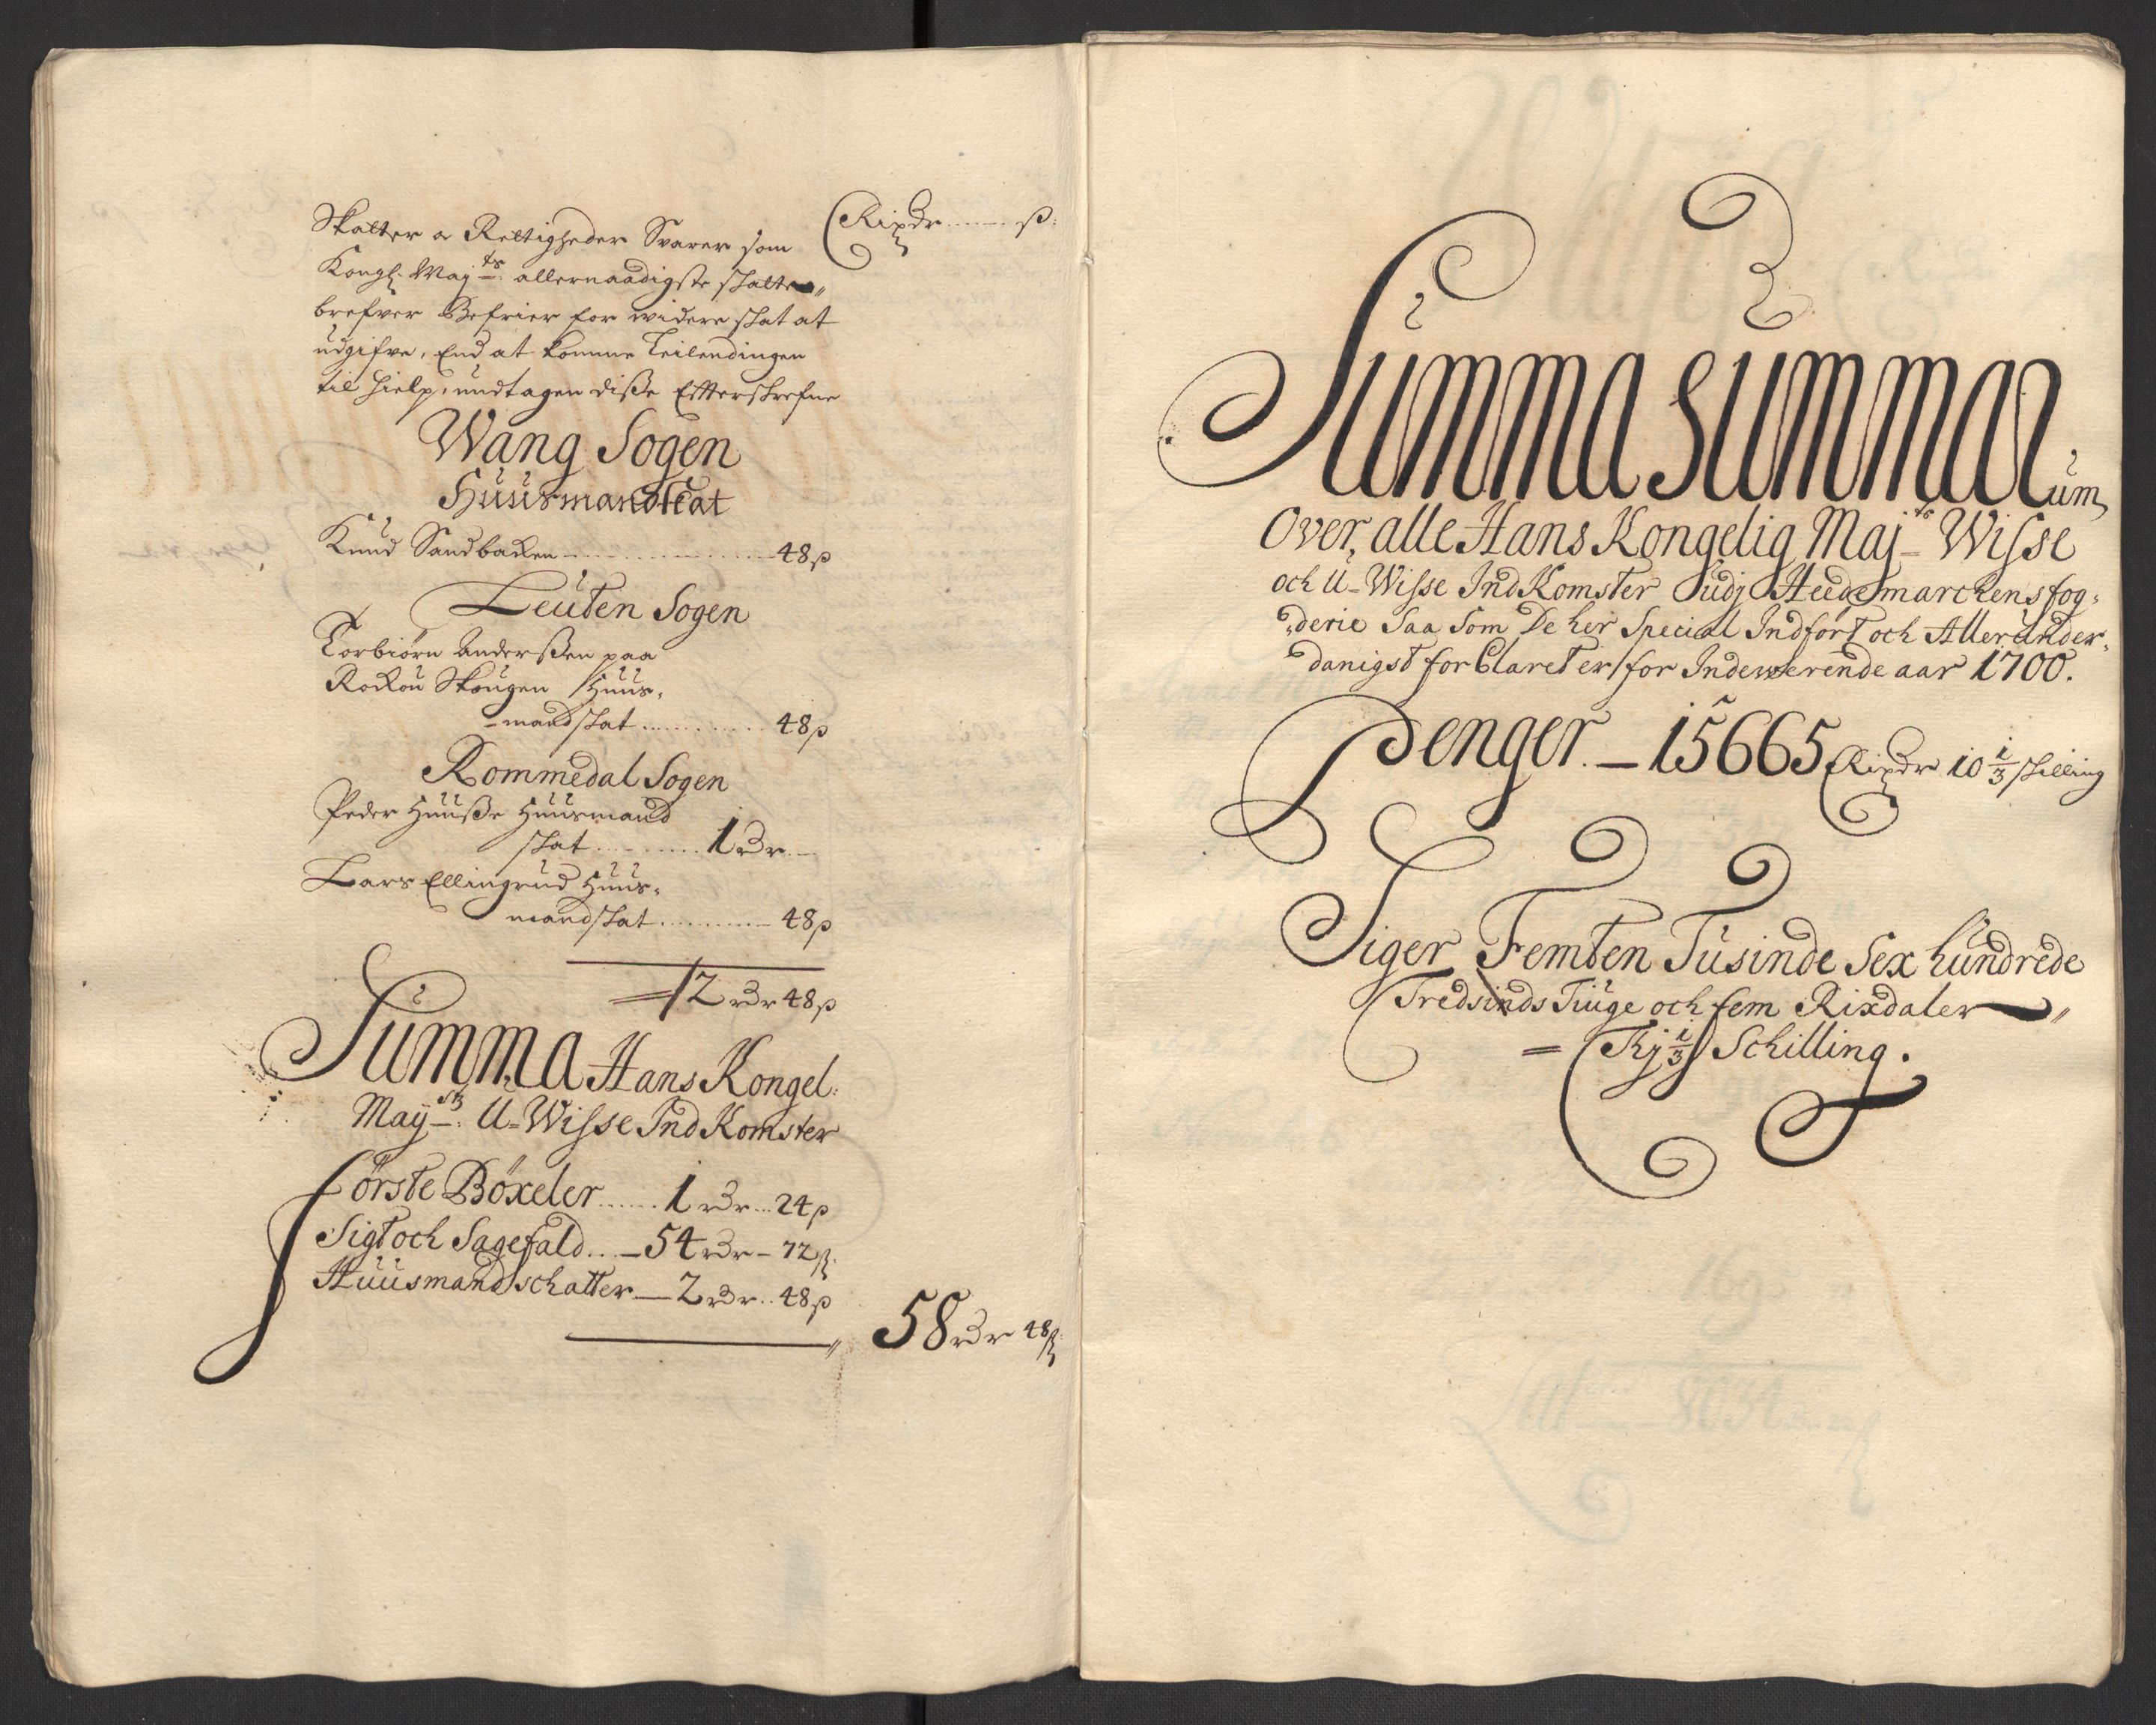 Rixdr ß:
Skatter og Rettigheder Svarer som
Kongl: May:ts allernaadigste skatte„
brefver Befrier for widere skat at
udgifve, End at komme Leilendingen
til hielp, undtagen diße Efterskrefne
Wang Sogen
Huusmandskat
Knud Sandbacken 48ß
Leuten Sogen
Torbiørn Anderßen paa
Rockou Skougen Huus-
-mandskat 48ß
Rommedal Sogen
Peder Huuße Huusmand
skat 1 rdr
Lars Ellingrud Huus-
mandskat 48ß
= 2 rdr 48ß
Summa Hans Kongel:
Maytz: U-Wisse IndKomster
Förste Böxeler 1 rdr 24ß
Sigt och Sagefald 54 rdr 72ß
Huusmandschatter 2 rdr 48ß
58 rdr 48ß
Summa Summarum
Over, alle Hans Kongelig Majts Wisse
och U-Wisse IndKomster Udj Hedemarckens fog-
derie Saa Som De her Special Indfört och Allerunder-
danigst forClaret er for Indewerende aar 1700.
Penger. - 15665 Rixdr 10 1/3 skilling
Siger Femten Tusinde Sex hundrede
Tredsinds Tiuge och fem Rixdaler „
= Thj 1/3 Schilling.